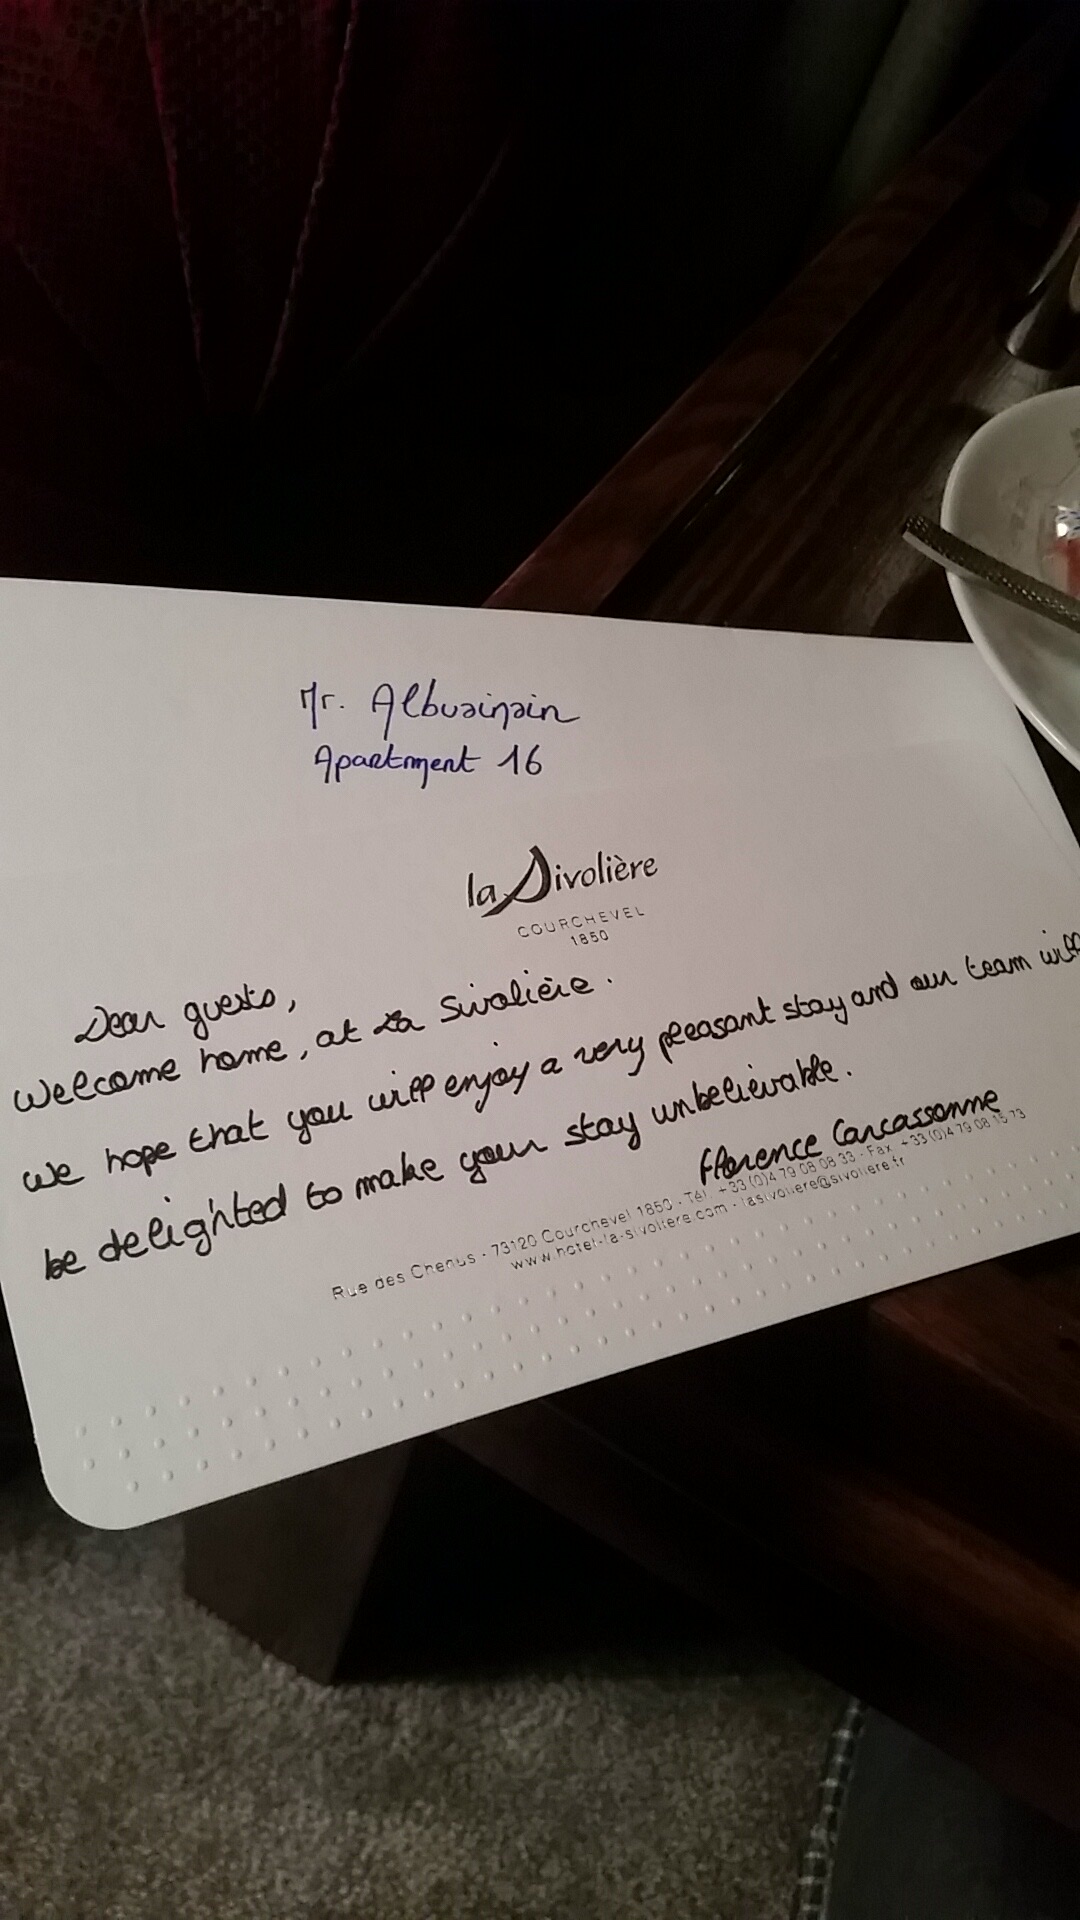 Mr. Albuainain
Apartment 16
la Sivolière
COURCHEVEL
1850
Dear guests,
Welcome home, at La Sivolière.
We hope that you will enjoy a very pleasant stay and our team will
be delighted to make your stay unbelievable.
Florence Carcassonne
Rue des Chenus - 73120 Courchevel 1850 - Tél. +33 (0)4 79 08 08 33 - Fax +33 (0)4 79 08 15 73
www.hotel-la-sivoliere.com - lasivoliere@sivoliere.fr